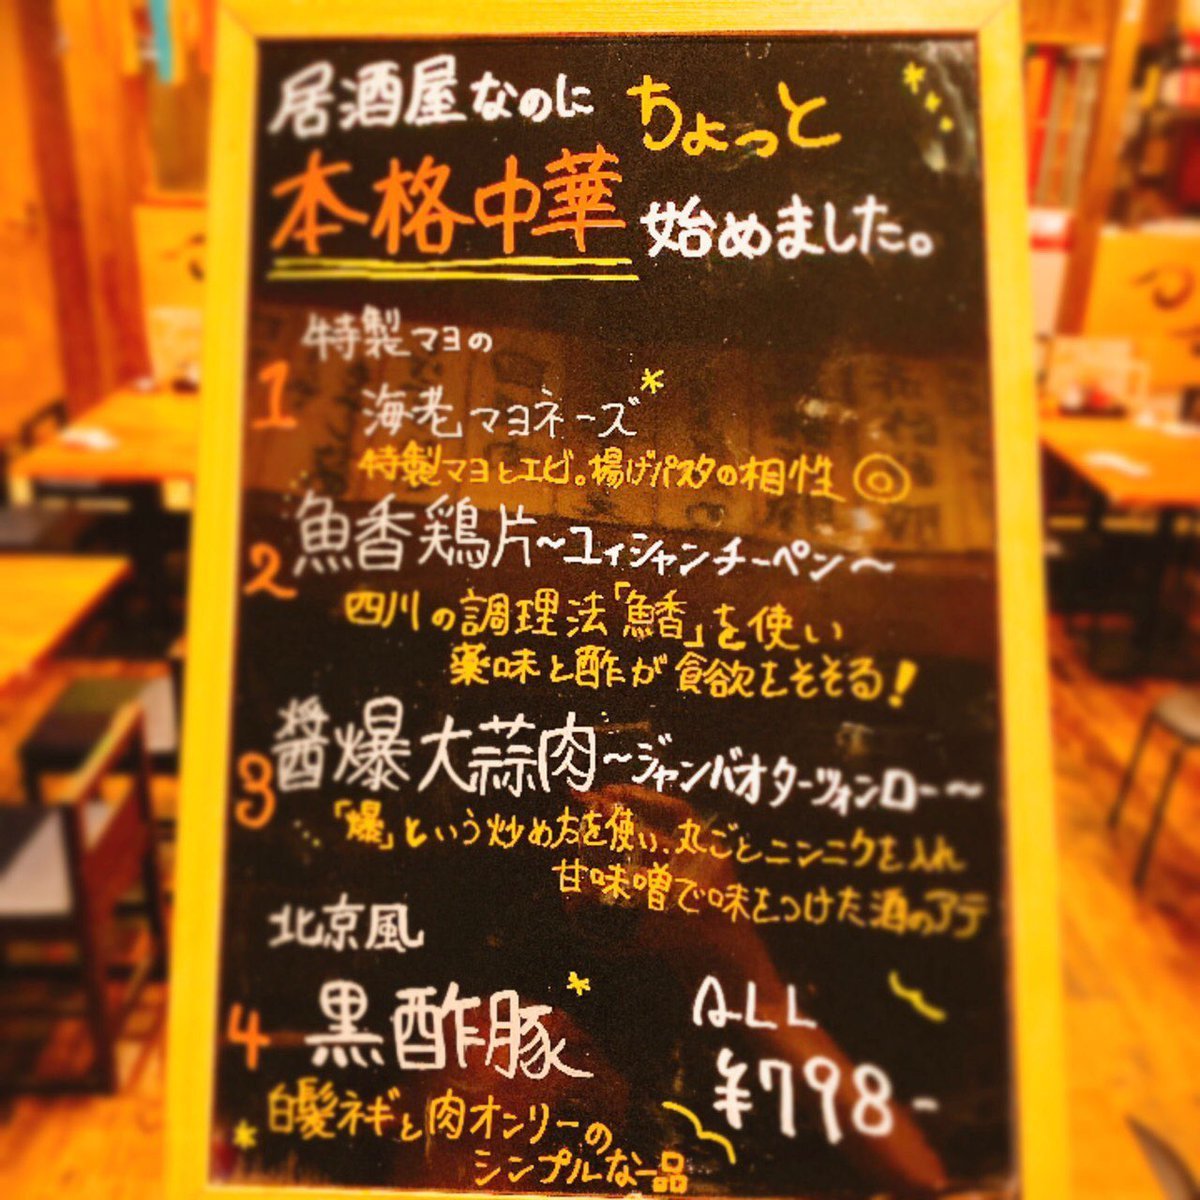 居酒屋なのに ちょっと
本格中華 始めました。
特製マヨの
1 海老マヨネーズ
特製マヨとエビ。揚げパスタの相性◎
2 魚香鶏片～ユィシャンチーペン～
四川の調理法「魚香」を使い
薬味と酢が食欲をそそる!
3 醤爆大蒜肉～ジャンバオターツォンロー～
「爆」という炒め方を使い、丸ごとニンニクを入れ
甘味噌で味をつけた酒のアテ
北京風
4 黒酢豚
ALL
¥798-
白髪ネギと肉オンリーの
シンプルな一品